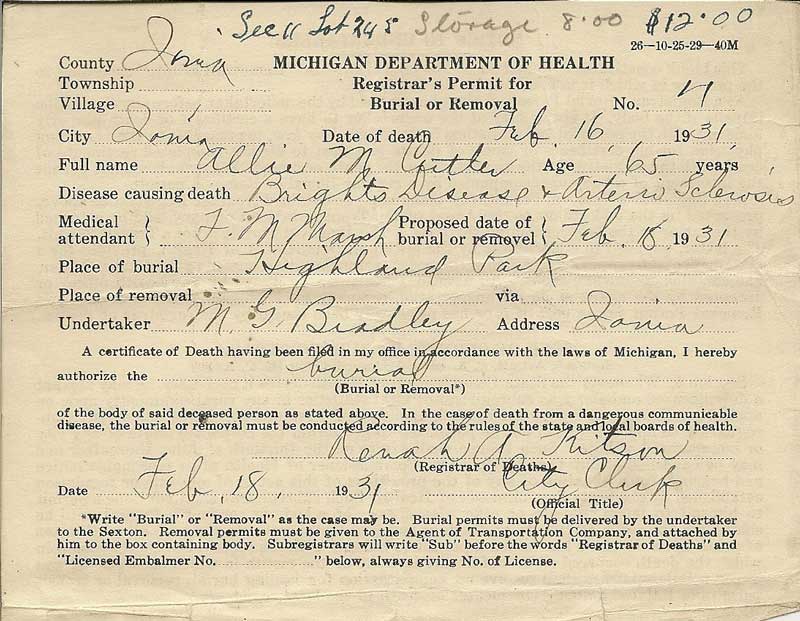 Sec 11 Lot 245 Storage 8.00 $12.00
26—10-25-29—40M
County Ionia MICHIGAN DEPARTMENT OF HEALTH
Township Registrar's Permit for
Village Burial or Removal No. 11
City Ionia Date of death Feb. 16, 1931,
Full name Allie M Cutler Age 65 years
Disease causing death Brights Disease & Arterio Sclerosis
Medical attendant F. M Marsh Proposed date of burial or removel Feb. 18 1931
Place of burial Highland Park
Place of removal via
Undertaker M. G. Bradley Address Ionia
A certificate of Death having been filed in my office in accordance with the laws of Michigan, I hereby
authorize the burial
(Burial or Removal*)
of the body of said deceased person as stated above. In the case of death from a dangerous communicable
disease, the burial or removal must be conducted according to the rules of the state and local boards of health.
Renah A. Kitson
(Registrar of Deaths)
Date Feb. 18, 1931 City Clerk
(Official Title)
*Write "Burial" or "Removal" as the case may be. Burial permits must be delivered by the undertaker
to the Sexton. Removal permits must be given to the Agent of Transportation Company, and attached by
him to the box containing body. Subregistrars will write "Sub" before the words "Registrar of Deaths" and
"Licensed Embalmer No. " below, always giving No. of License.